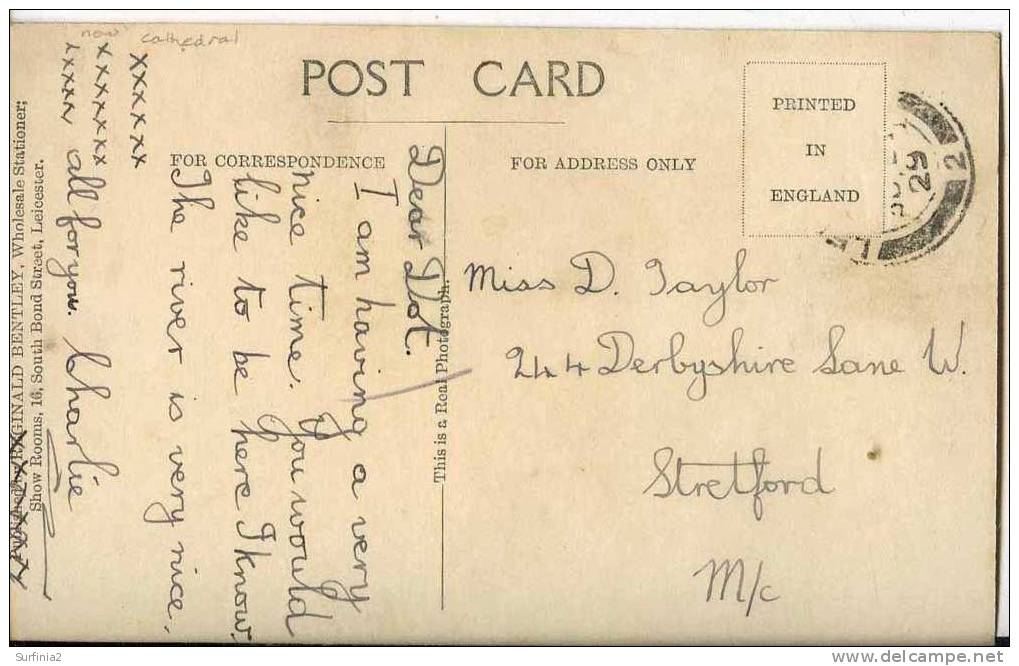 now cathedral
POST CARD
FOR CORRESPONDENCE
FOR ADDRESS ONLY
PRINTED
IN
ENGLAND
29
2
Dear Dot.
I am having a very
nice time. You would
like to be here I know.
The river is very nice.
xxxxxx
xxxxxxx
xxxxx all for you. Charlie
Miss D. Taylor
244 Derbyshire Lane W.
Stretford
M/c
This is a Real Photograph.
Published by REGINALD BENTLEY, Wholesale Stationer;
Show Rooms, 16, South Bond Street, Leicester.
Surfinia2
delcampe.net